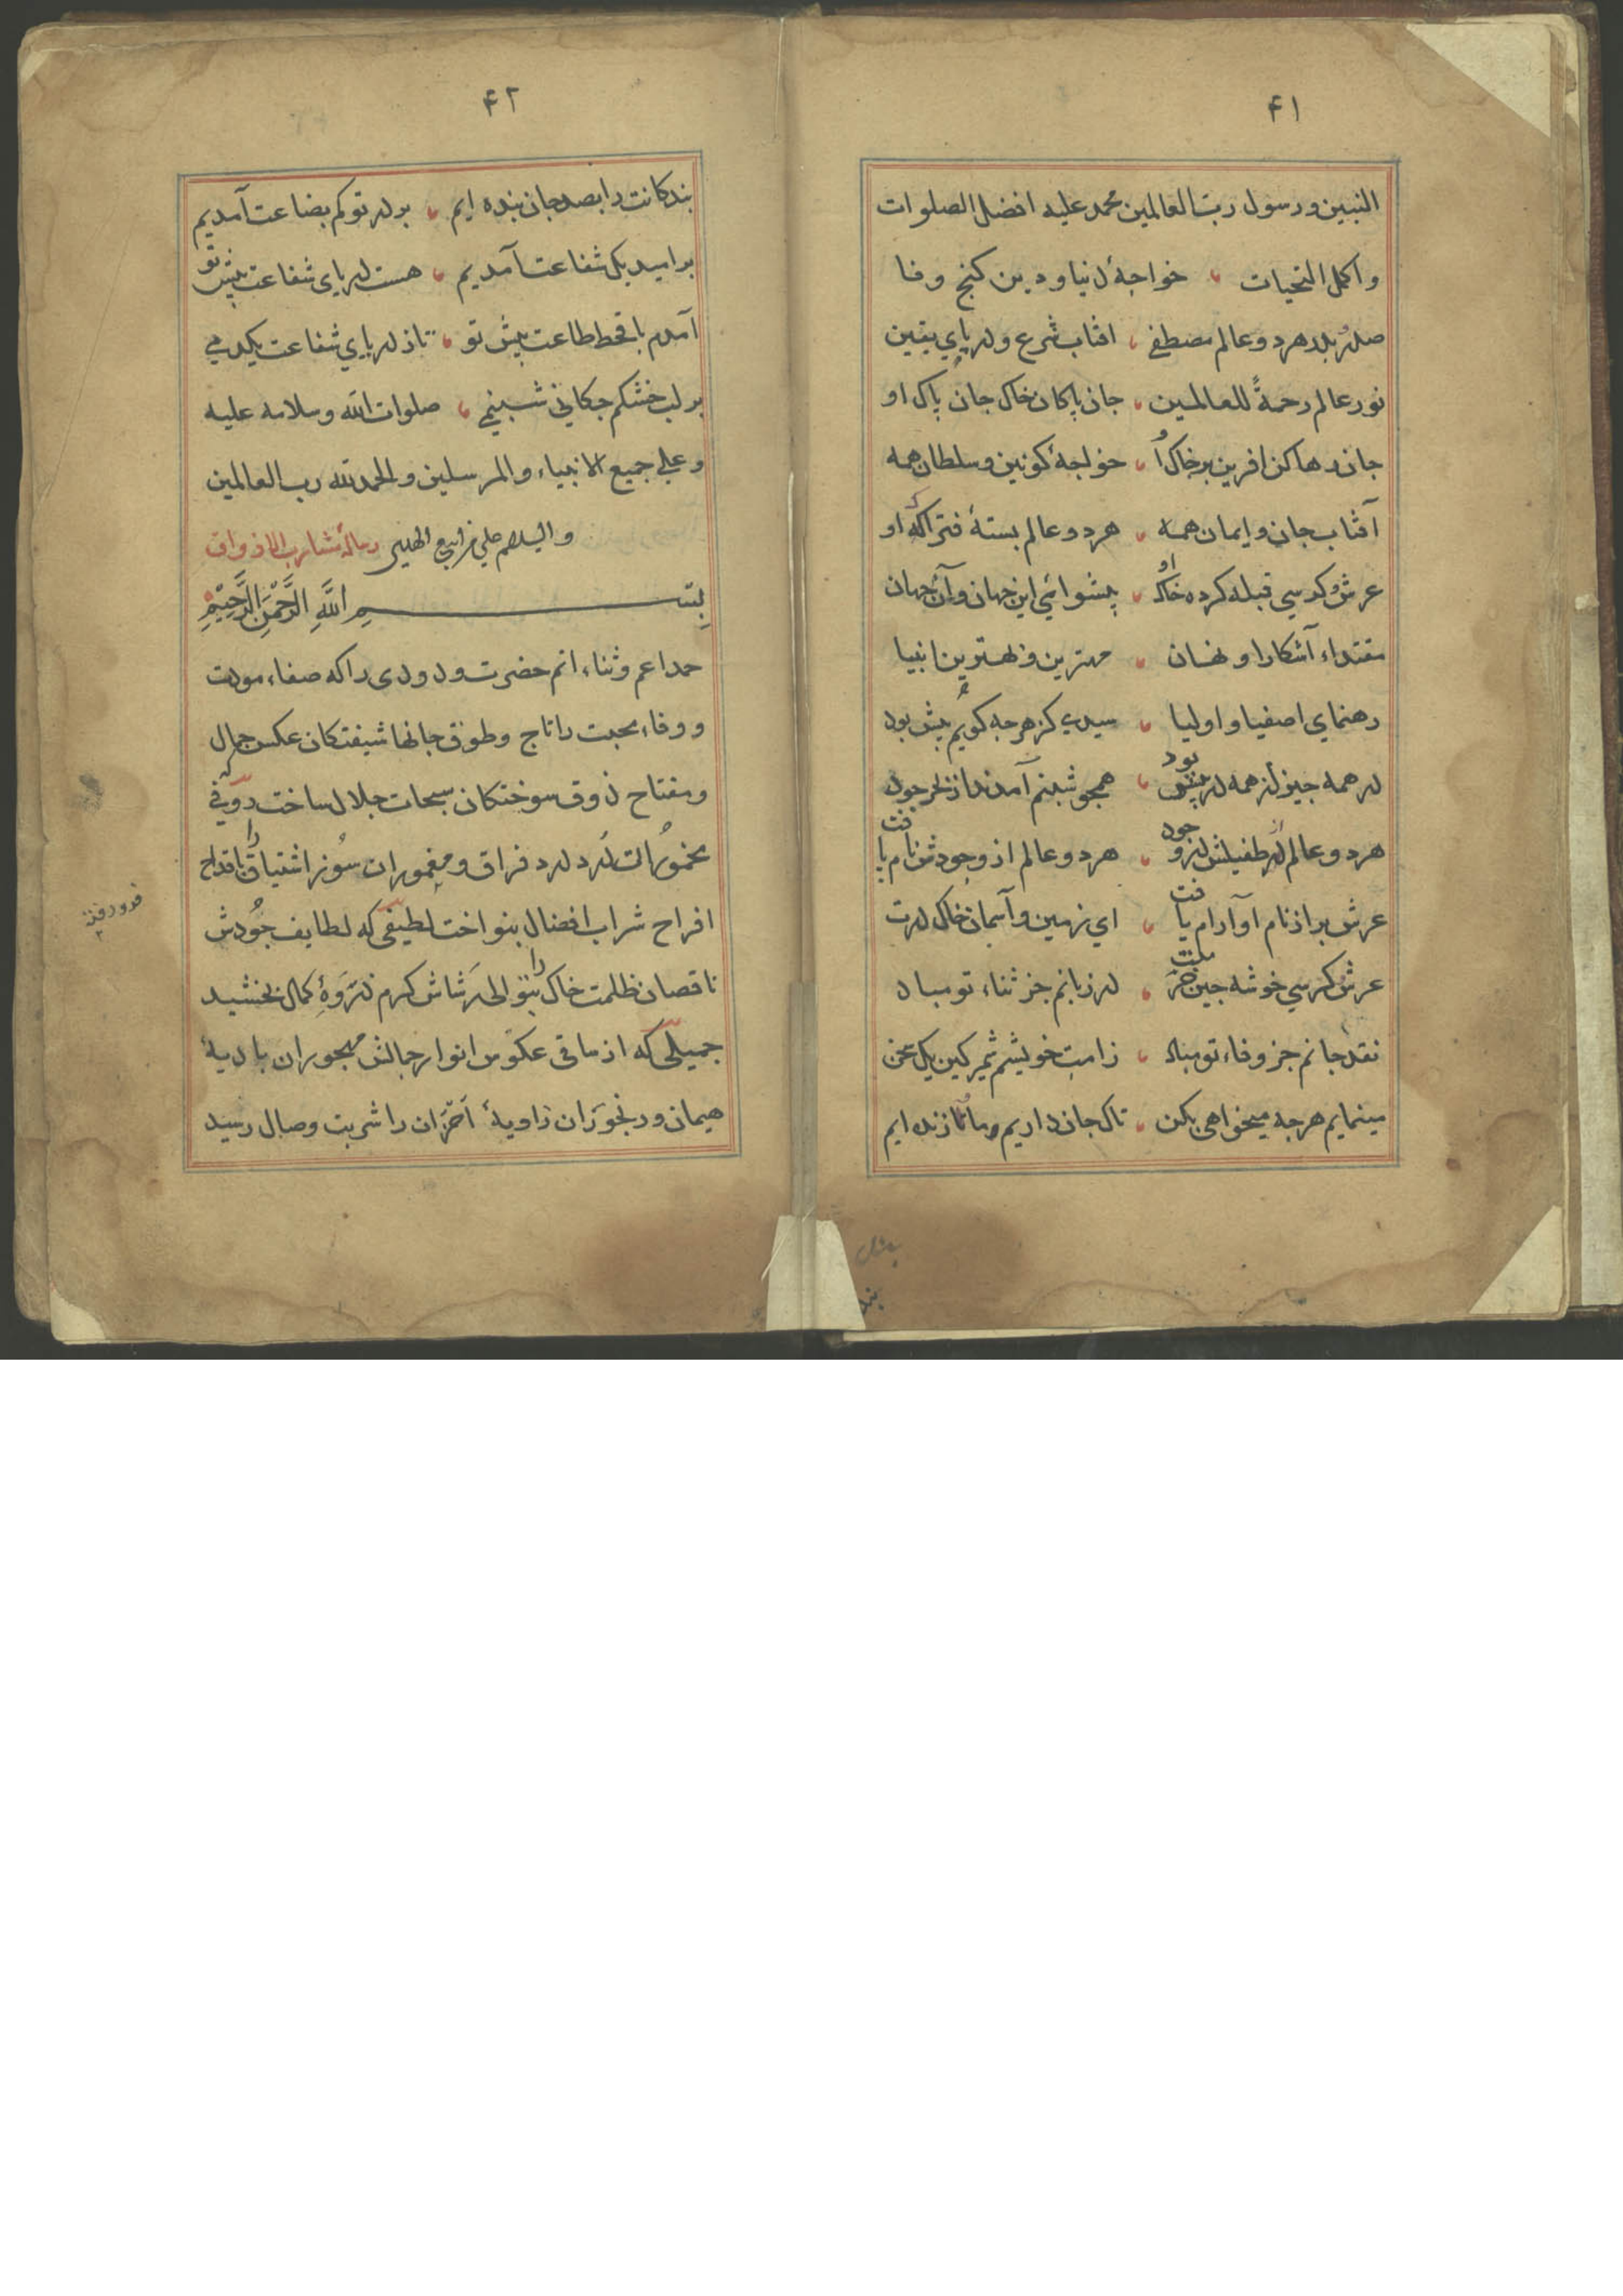 ۴۱
النبیین و رسول ربّ العالمین محمد علیه افضل الصلوات
و اکمل التحیات خواجهٔ دنیا و دین کنج وفا
صدر بدر هر دو عالم مصطفی افتاب شرع و دریای یقین
نور عالم رحمةً للعالمین جان پاکان خاک جان پاک او
جان رها کن افرین بر خاک او خواجهٔ کونین و سلطان همه
آفتاب جان و ایمان همه هر دو عالم بستهٔ فتراک او
عرش و کرسی قبله کرده خاک او پیشوائی این جهان و آن جهان
مقتداء آشکارا و نهان مهترین و بهترین انبیا
رهنمای اصفیا و اولیا سیدی کز هرجه کویم بیش بود
در همه جیز از همه در پیش بود همجو شبنم آمدند از بحر جود
هر دو عالم از طفیلش در وجود هر دو عالم از وجودش نام یافت
عرش بر از نام او آرام یافت ای زمین و آسمان خاک درت
عرش و کرسی خوشه جین در زبانم جز ثناء تو مباد
نقد جانم جز وفاء تو مباد ز امت خویشم شمر کین یک سخن
مینمایم هرجه میخواهی بکن تا که جان داریم و ما تا زنده ایم
۴۲
بندکانت را بصد جان بنده ایم بر در تو کم بضاعت آمدیم
بر امید یک شفاعت آمدیم هست دریای شفاعت پیش تو
آمدم با قحط طاعت پیش تو تا ز دریای شفاعت یکدمی
بر لب خشکم جکانی شبنمی صلوات الله و سلامه علیه
و علی جمیع الانبیاء و المرسلین و الحمد لله رب العالمین
و السلام علی من اتبع الهدی رسالهٔ مشارب الاذواق
بسم الله الرَّحْمٰنِ الرَّحِیْمِ
حمد اعم و ثناء اتم حضرت ودودی را که صفاء مودت
و وفاء محبت را تاج و طوق جانها شیفتکان عکس جمال
و مفتاح ذوق سوختکان سبحات جلال ساخت رؤفی که
مخموران دُرد درد فراق و مغموران سُوز اشتیاق را باقداح
افراح شراب افضال بنواخت لطیفی که لطایف جُودش
ناقصان ظلمت خاک را بتوالی رَشاش کرم ذروهٔ کمال بخشید
جمیلی که از ماقی عکوس انوار جمالش مهجوران بادیهٔ
هیمان و رنجوَران زاویهٔ احزان را شربت وصال رسید